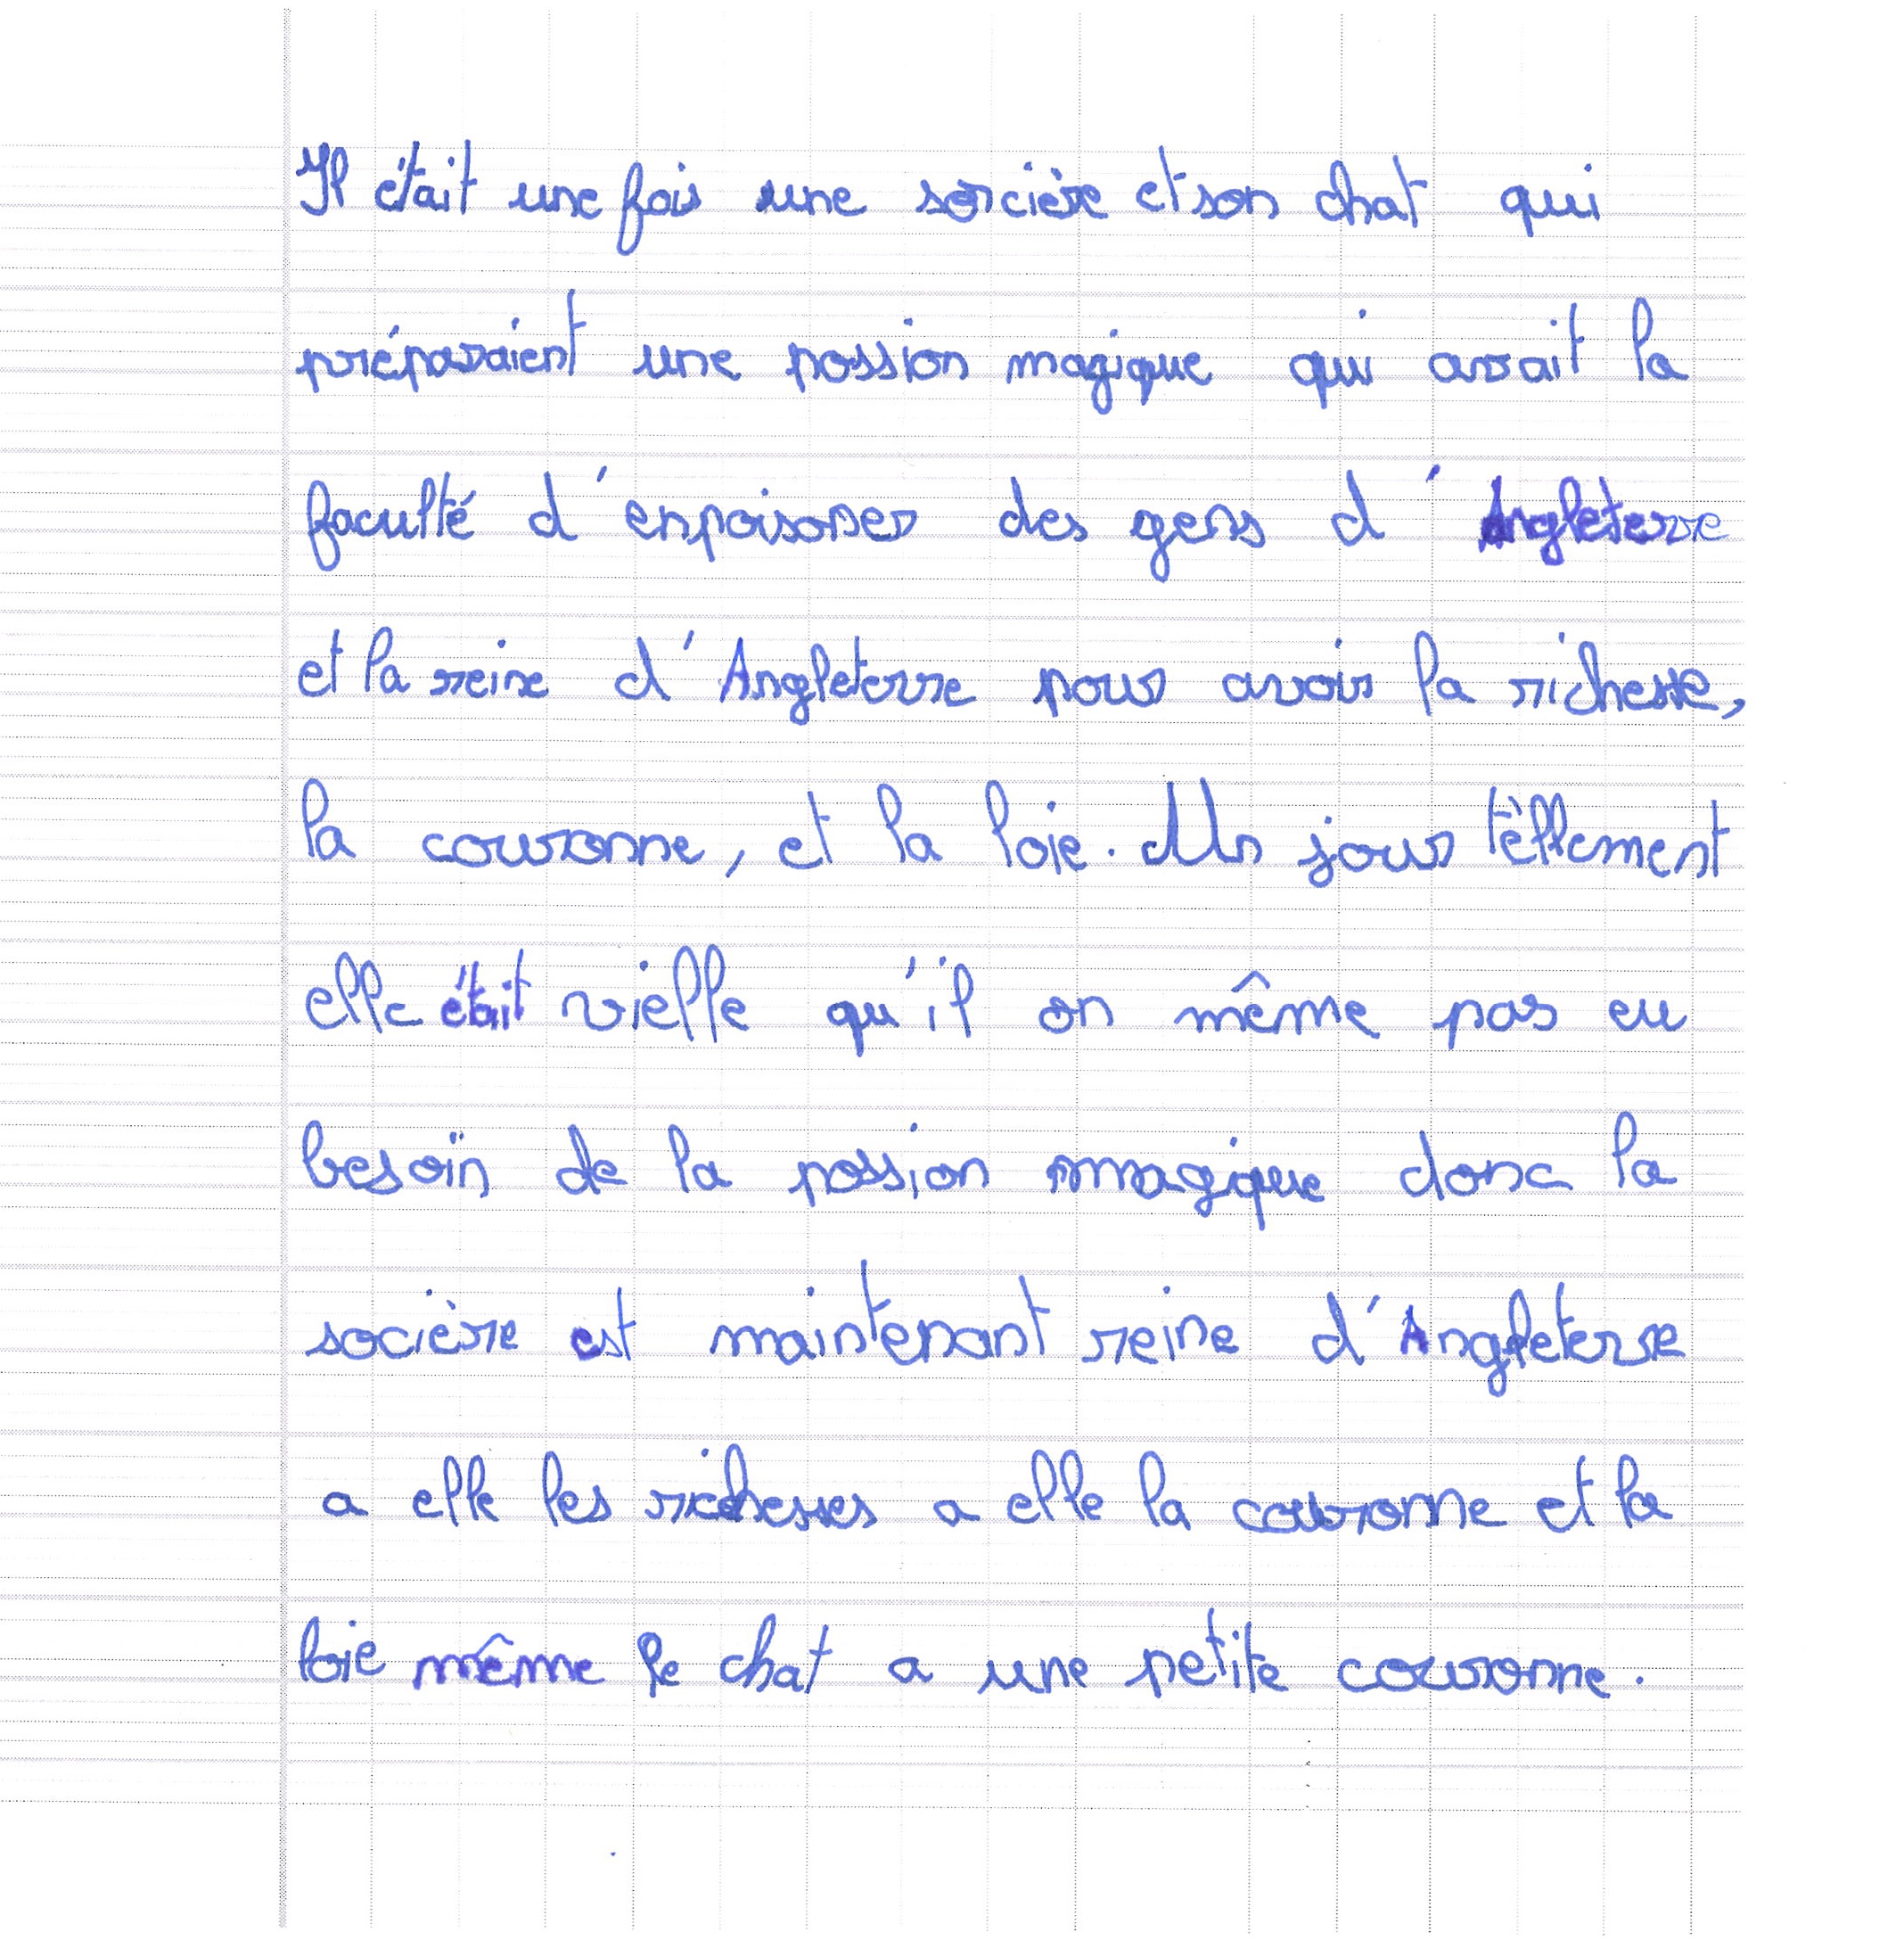 Il était une fois une sorcière et son chat qui
préparaient une possion magique qui avait la
faculté d'enpoisoner des gens d'Angleterre
et la reine d'Angleterre pour avoir la richesse,
la couronne, et la loie. Un jour tèllement
elle était vielle qu'il on même pas eu
besoin de la possion magique donc la
socière est maintenant reine d'Angleterre
a elle les richesses a elle la couronne et la
loie même le chat a une petite couronne.